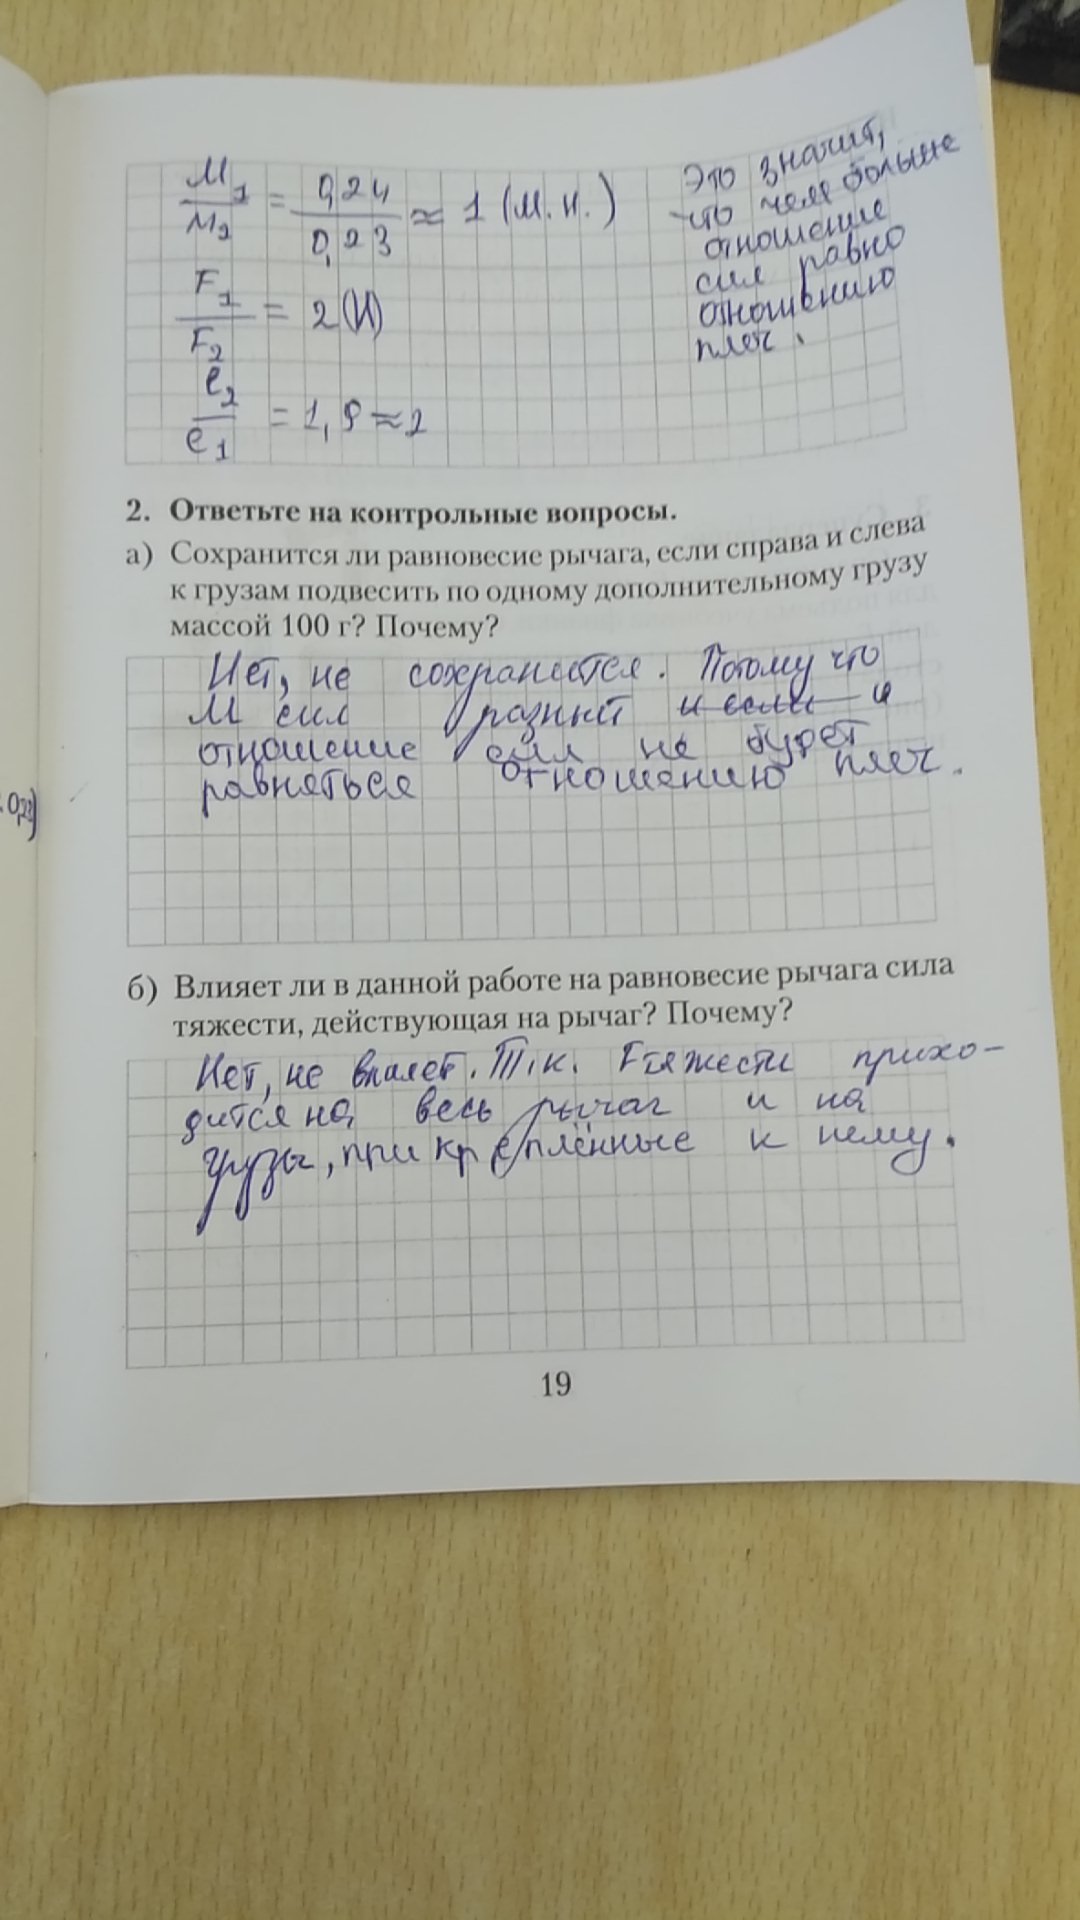 M₁/M₂ = 0,24/0,23 ≈ 1 (М.н.)
F₁/F₂ = 2(Н)
l₂/l₁ = 1,9 ≈ 2
Это значит,
что чем больше
отношение
сил равно
отношению
плеч.
2. Ответьте на контрольные вопросы.
а) Сохранится ли равновесие рычага, если справа и слева
к грузам подвесить по одному дополнительному грузу
массой 100 г? Почему?
Нет, не сохранится. Потому что
М сил разный и если и
отношение сил не будет
равняться отношению плеч.
б) Влияет ли в данной работе на равновесие рычага сила
тяжести, действующая на рычаг? Почему?
Нет, не влияет. Т.к. Fтяжести прихо-
дится на весь рычаг и на
грузы, прикреплённые к нему.
19